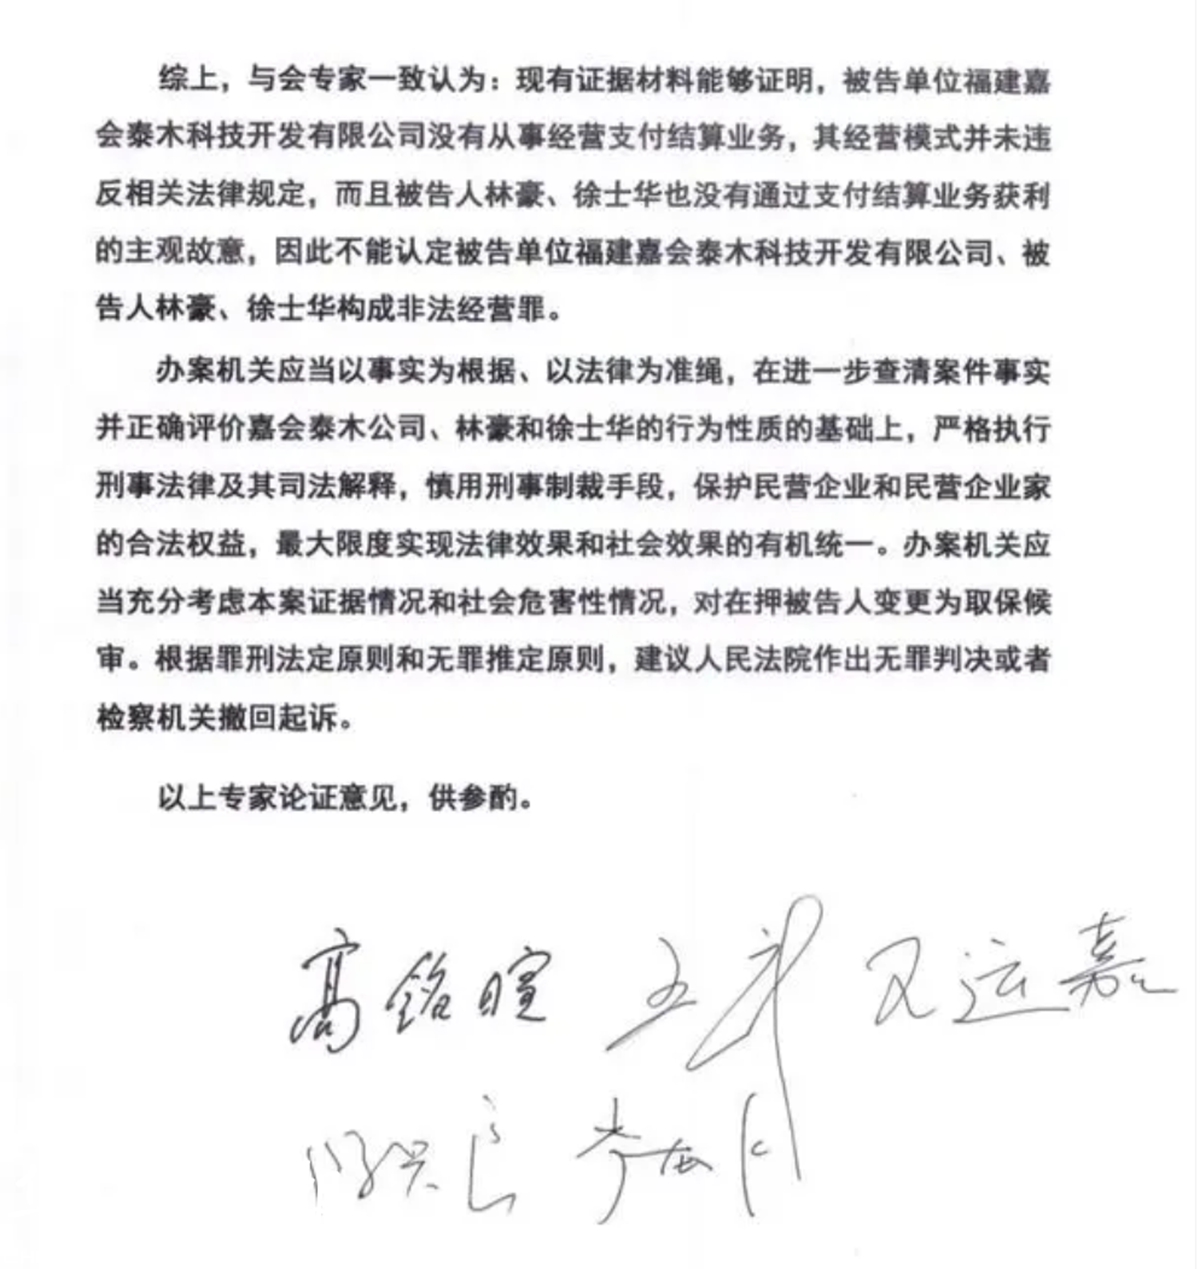 综上，与会专家一致认为：现有证据材料能够证明，被告单位福建嘉
会泰木科技开发有限公司没有从事经营支付结算业务，其经营模式并未违
反相关法律规定，而且被告人林豪、徐士华也没有通过支付结算业务获利
的主观故意，因此不能认定被告单位福建嘉会泰木科技开发有限公司、被
告人林豪、徐士华构成非法经营罪。
办案机关应当以事实为根据、以法律为准绳，在进一步查清案件事实
并正确评价嘉会泰木公司、林豪和徐士华的行为性质的基础上，严格执行
刑事法律及其司法解释，慎用刑事制裁手段，保护民营企业和民营企业家
的合法权益，最大限度实现法律效果和社会效果的有机统一。办案机关应
当充分考虑本案证据情况和社会危害性情况，对在押被告人变更为取保候
审。根据罪刑法定原则和无罪推定原则，建议人民法院作出无罪判决或者
检察机关撤回起诉。
以上专家论证意见，供参酌。
高铭暄
陈兴良